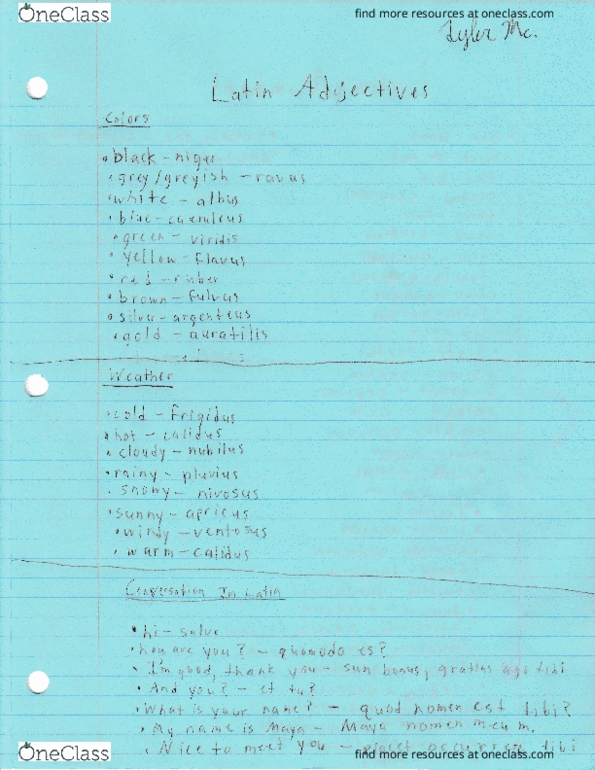 OneClass
find more resources at oneclass.com
Tyler Mc.
Latin Adjectives
Colors
• black - niger
• grey/greyish - ravus
• white - albus
• blue - caeruleus
• green - viridis
• yellow - flavus
• red - ruber
• brown - fulvus
• silver - argenteus
• gold - auratilis
Weather
• cold - frigidus
• hot - calidus
• cloudy - nubilus
• rainy - pluvius
• snowy - nivosus
• sunny - apricus
• windy - ventosus
• warm - calidus
Conversation In Latin
• hi - salve
• how are you? - quomodo es?
• I'm good, thank you - sum bonus, gratias ago tibi
• And you? - et tu?
• What is your name? - quod nomen est tibi?
• My name is Maya - Maya nomen meum.
• Nice to meet you - tibi
OneClass
find more resources at oneclass.com